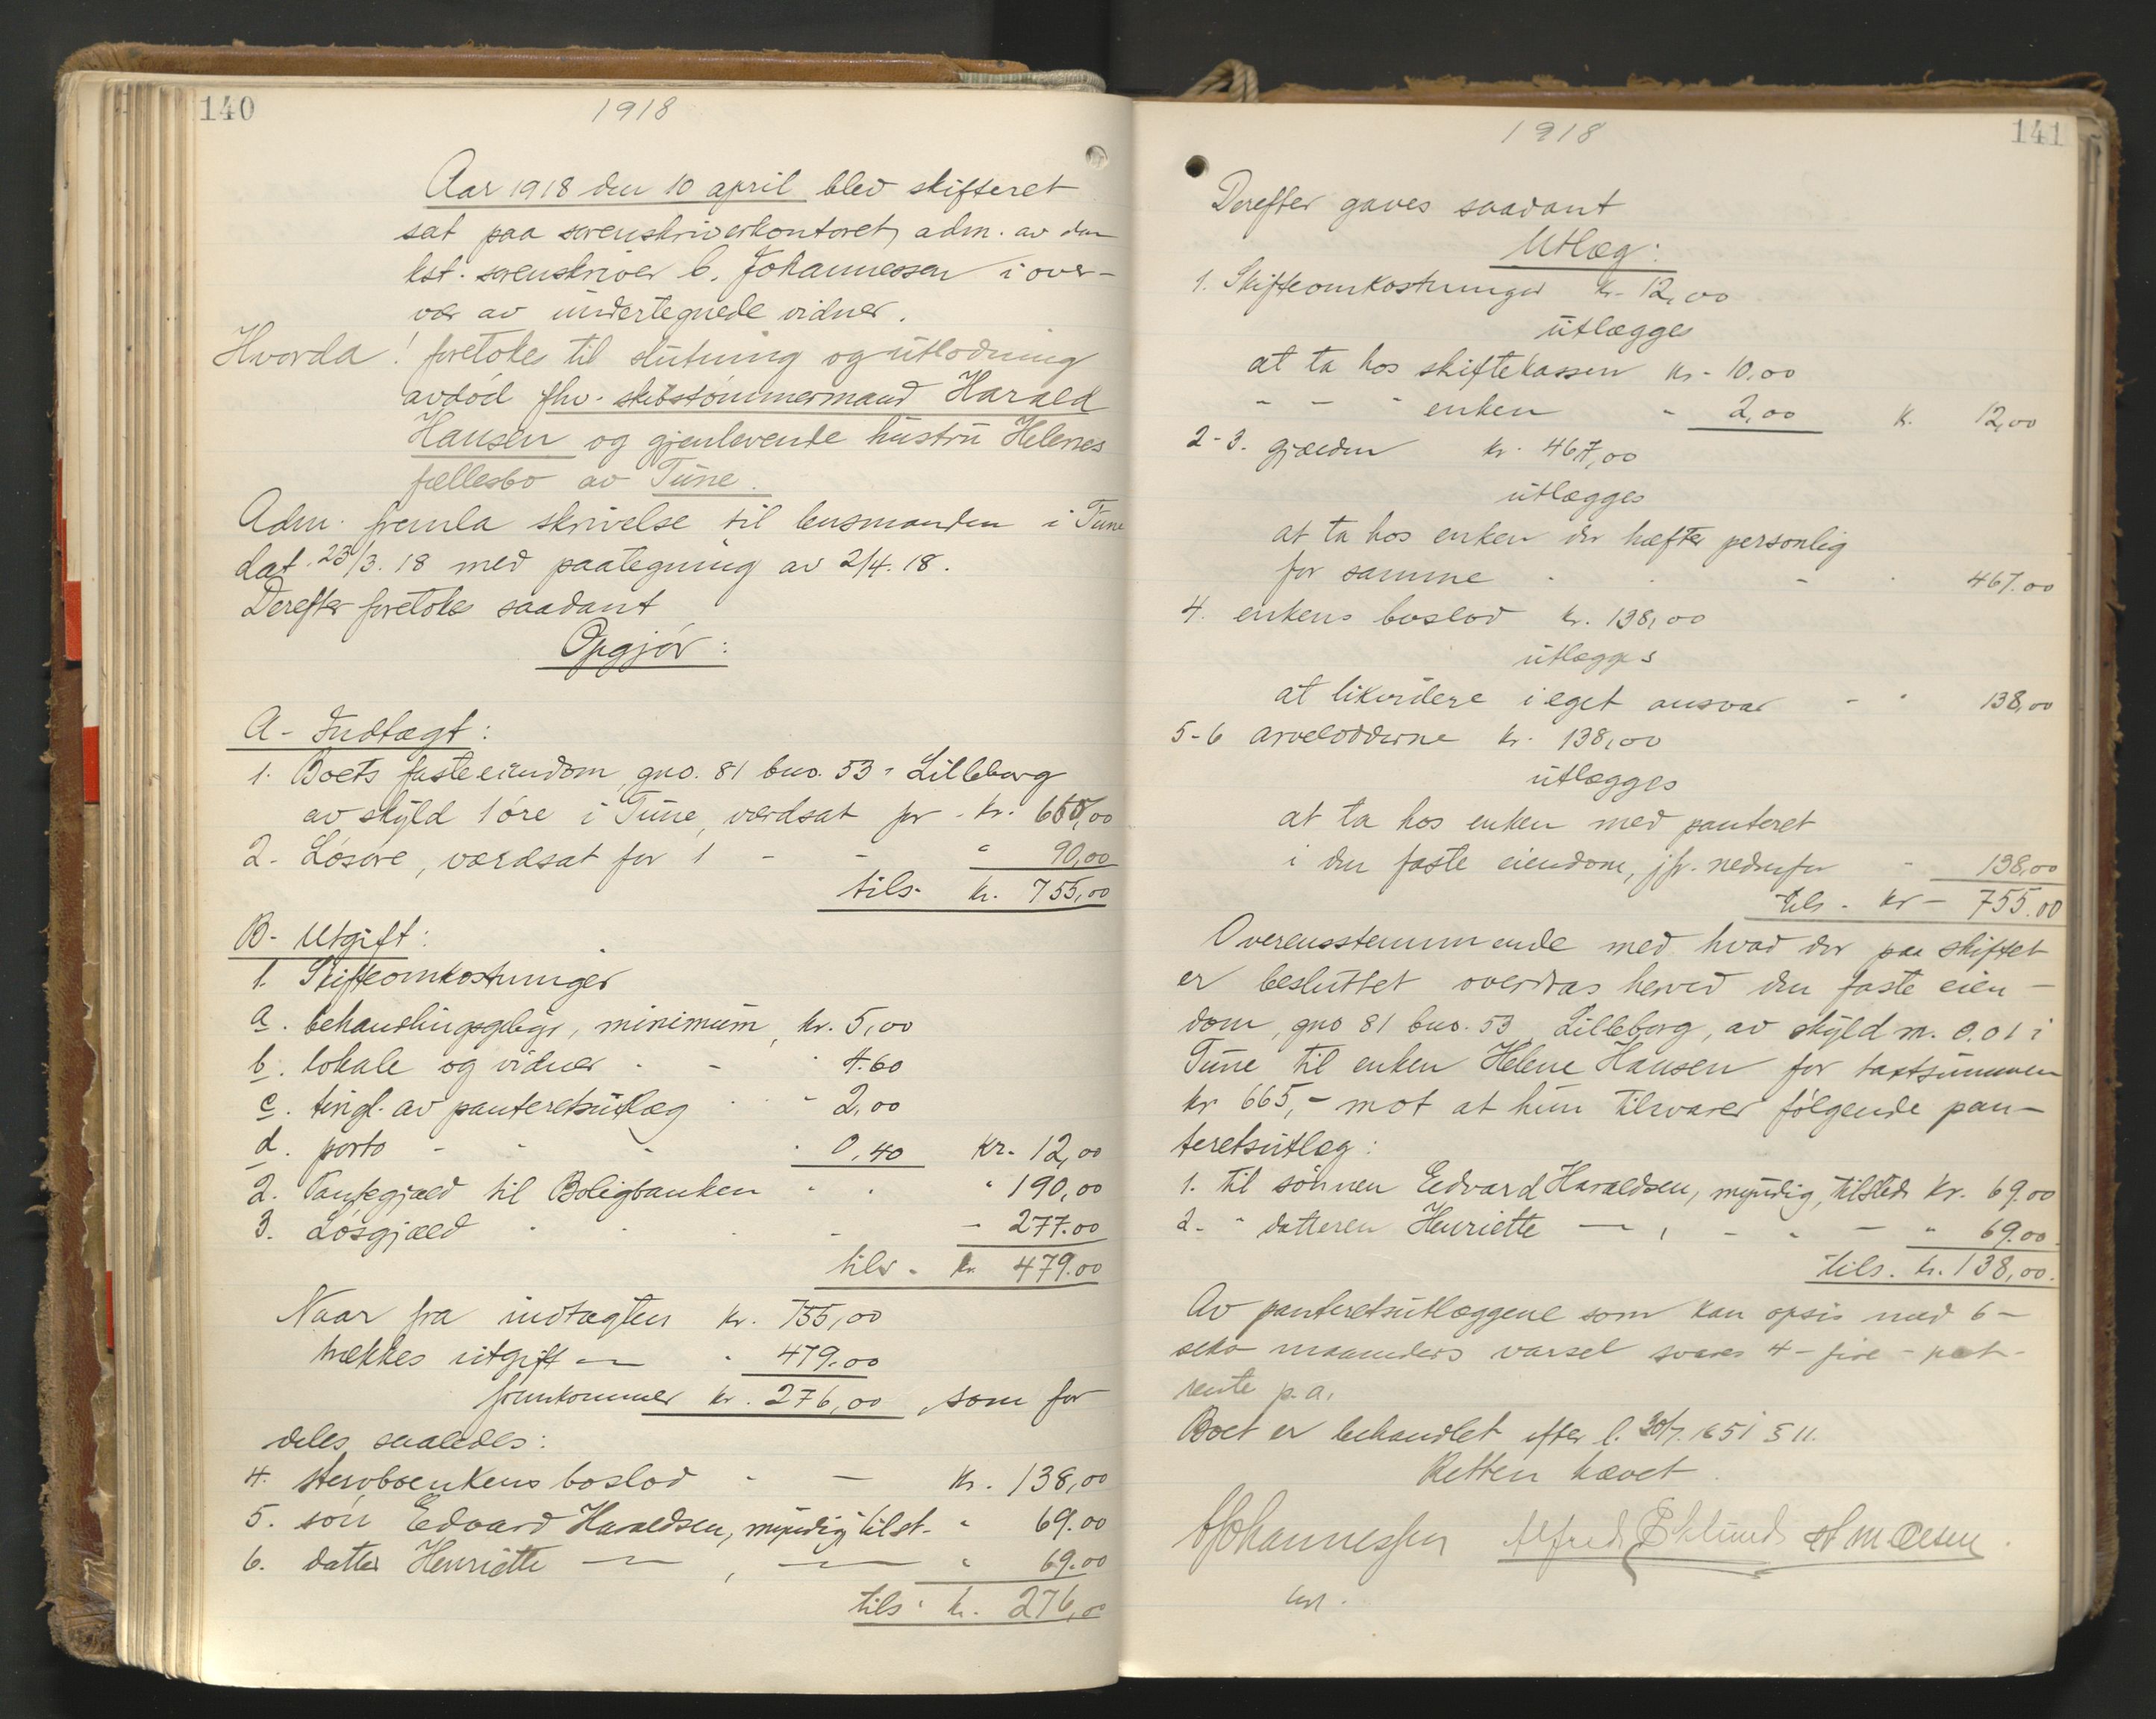 140
1918
Aar 1918 den 10 april blev skifteret
sat paa sorenskriverkontoret, adm. av den
kst. sorenskriver C. Johannessen i over-
vær av undertegnede vidner.
Hvorda! foretokes til slutning og utlodning
avdöd fhv. skibstömmermand Harald
Hansen og gjenlevende hustru Helenes
fællesbo av Tune.
Adm. fremla skrivelse til lensmanden i Tune
dat. 23/3. 18 med paategning av 2/4. 18.
Derefter foretokes saadant
Opgjör:
A - Indtægt:
1. Boets faste eiendom, gno. 81 bno. 53 Lilleborg
av skyld 1 öre i Tune, værdsat for - kr. 665,00
2. Lösöre, værdsat for - - " 90,00
tils. kr. 755,00
B - Utgift:
1. Skifteomkostninger
a. behandlingsgebyr, minimum, kr. 5,00
b. lokale og vidner - " 4.60
c. tingl. av panteretsutlæg " 2,00
d. porto - - " 0,40 kr. 12,00
2. Pantegjæld til Boligbanken " " 190,00
3. Lösgjæld - - 277.00
tils. kr. 479.00
Naar fra indtægten kr. 755,00
trækkes utgift — " 479.00
fremkommer kr. 276,00, som for
deles saaledes:
4. stervboenkens boslod - — kr. 138,00
5. sön Edvard Haraldsen, myndig, tilst. " 69.00
6. datter Henriette — , — " 69.00
tils. kr. 276,00
141
1918
Derefter gaves saadant
Utlæg:
1. Skifteomkostninger kr. 12,00
utlægges
at ta hos skiftekassen kr. 10,00
" - " enken " 2,00 kr. 12,00
2-3. gjælden kr. 467,00
utlægges
at ta hos enken der hæfter personlig
for samme - 467.00
4. enkens boslod kr. 138,00
utlægges
at likvidere i eget ansvar - " 138,00
5-6 arvelodderne kr. 138,00
utlægges
at ta hos enken med panteret
i den faste eiendom, jfr. nedenfor - 138,00
tils. kr - 755.00
Overensstemmende med hvad der paa skiftet
er besluttet overdras herved den faste eien-
dom, gno 81 bno. 53, Lilleborg, av skyld m. 0.01 i
Tune til enken Helene Hansen for taxtsummen
kr 665,- mot at hun tilsvarer fölgende pan-
teretsutlæg:
1. til sönnen Edvard Haraldsen, myndig, tilstede kr. 69.00
2. " datteren Henriette — , - " — " 69.00.
tils. kr. 138,00.
Av panteretsutlæggene som kan opsis med 6-
seks maaneders varsel svares 4-fire-pct-
rente p.a.
Boet er behandlet efter l. 30/7. 1851 § 11.
Retten hævet.
C Johannessen Alfred Eklund
kst.